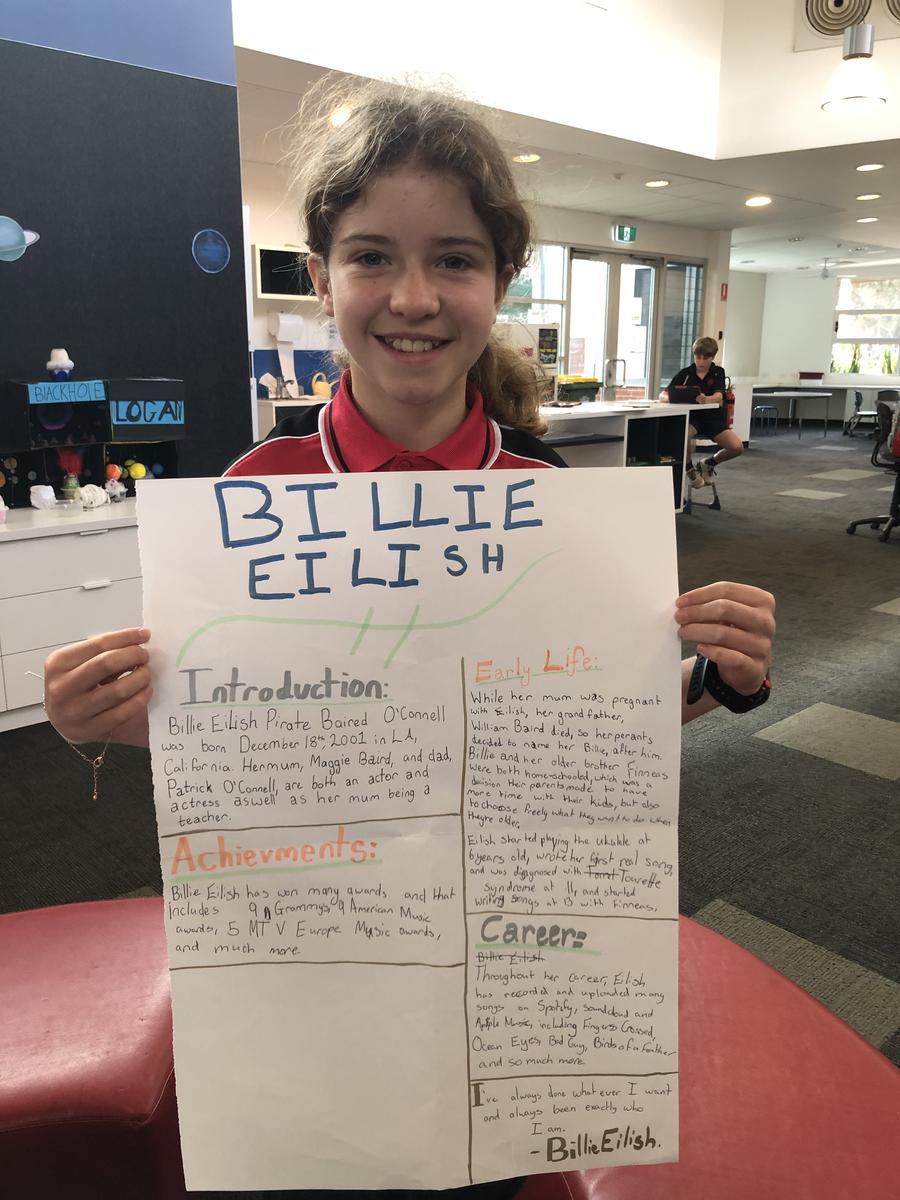 BLACKHOLE
LOGAN
BILLIE
EILISH
Introduction:
Billie Eilish Pirate Baired O'Connell
was born December 18th 2001 in LA,
California. Her mum, Maggie Baird, and dad,
Patrick O'Connell, are both an actor and
actress aswell as her mum being a
teacher.
Achievments:
Billie Eilish has won many awards and that
includes 9 Grammys, 9 American Music
awards, 5 MTV Europe Music awards,
and much more
Early Life:
While her mum was pregnant
with Eilish, her grand father,
William Baird died, so her perants
decided to name her Billie, after him.
Billie and her older brother Finneas
were both home-schooled, which was a
decision their parents made to have
more time with their kids, but also
to choose freely what they want to do when
they're older.
Eilish started playing the ukulale at
6 years old, wrote her first real song,
and was diagnosed with Toret Tourette
syndrome at 11, and started
writing songs at 13 with Finneas,
Career:
Billie Eilish
Throughout her career, Eilish
has recorded and uploaded many
songs on Spotify, soundcloud and
Apple Music, including Fingers Crossed,
Ocean Eyes, Bad Guy, Birds of a Feather
and so much more
I've always done what ever I want
and always been exactly who
I am.
- Billie Eilish.